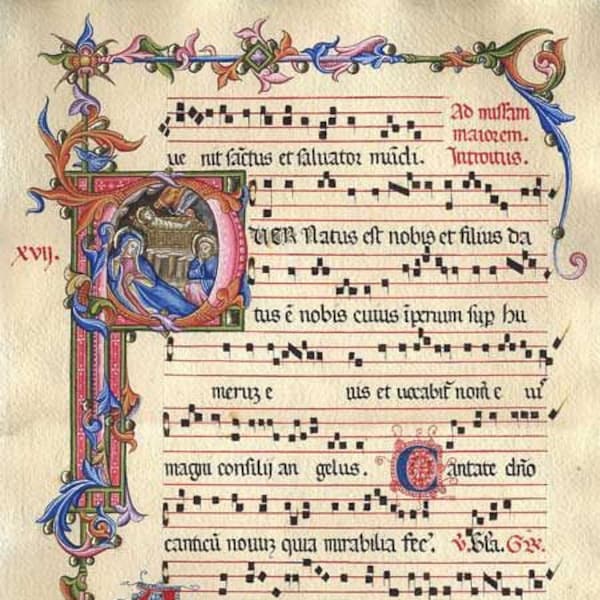 Ad missam
maiorem.
Introitus.
ue nit sāctus et saluator mūdi.
PUER Natus est nobis et filius da
xvij.
tus ē nobis cuius īperium sup hu
meruz e ius et uocabit nom̄ e ius
magni consilij an gelus. Cantate dn̄o
canticū nouuz quia mirabilia fec'. V. Gl̄a. GR.